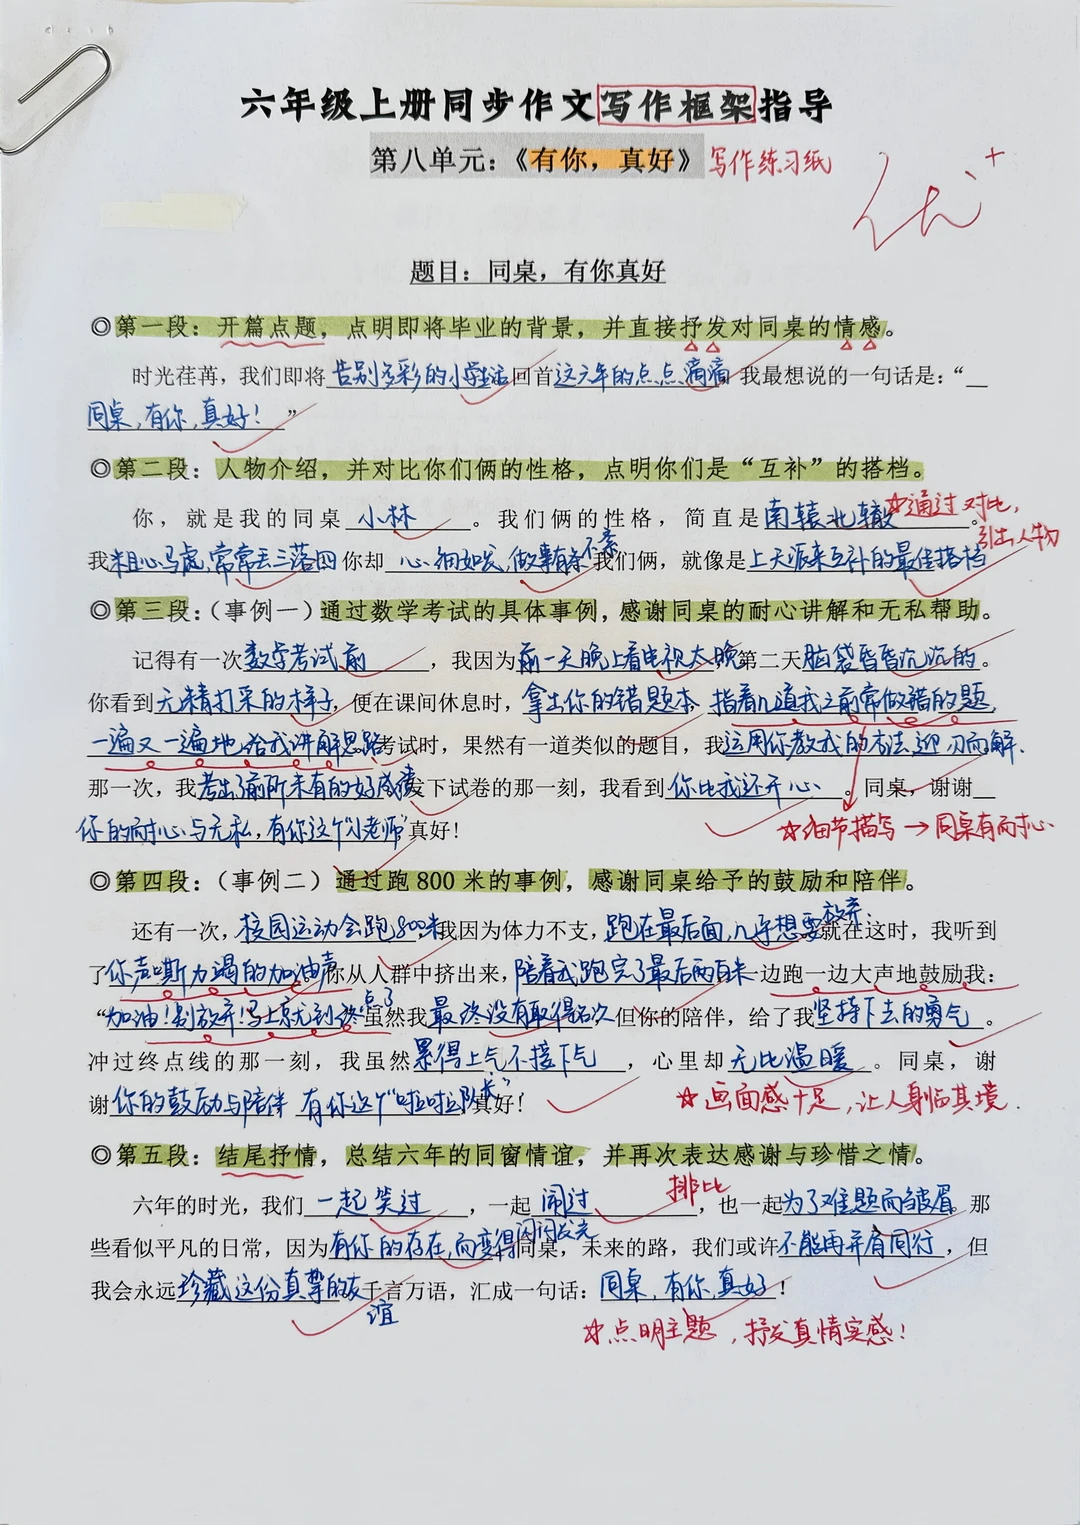 六年级上册同步作文写作框架指导
第八单元：《有你，真好》写作练习纸
优+
题目：同桌，有你真好
◎第一段：开篇点题，点明即将毕业的背景，并直接抒发对同桌的情感。
时光荏苒，我们即将告别多彩的小学生活回首这六年的点点滴滴，我最想说的一句话是：“
同桌，有你，真好！”
◎第二段：人物介绍，并对比你们俩的性格，点明你们是“互补”的搭档。
你，就是我的同桌小林。我们俩的性格，简直是南辕北辙。
☆通过对比，
引出人物
我粗心马虎，常常丢三落四你却心细如发，做事有条不紊我们俩，就像是上天派来互补的最佳搭档
◎第三段：（事例一）通过数学考试的具体事例，感谢同桌的耐心讲解和无私帮助。
记得有一次数学考试前，我因为前一天晚上看电视太晚第二天脑袋昏昏沉沉的。
你看到无精打采的样子，便在课间休息时，拿出你的错题本，指着几道我之前常做错的题，
一遍又一遍地给我讲解思路考试时，果然有一道类似的题目，我运用你教我的方法，迎刃而解.
那一次，我考出了前所未有的好成绩发下试卷的那一刻，我看到你比我还开心。同桌，谢谢
你的耐心与无私，有你这个“小老师”真好！
☆细节描写→同桌有耐心
◎第四段：（事例二）通过跑800米的事例，感谢同桌给予的鼓励和陪伴。
还有一次，校园运动会跑800米我因为体力不支，跑在最后面，几乎想要放弃。就在这时，我听到
了你声嘶力竭的加油声你从人群中挤出来，陪着我跑完了最后两百米一边跑一边大声地鼓励我：
“加油！别放弃！马上就到终点了虽然我最终没有取得名次但你的陪伴，给了我坚持下去的勇气。
冲过终点线的那一刻，我虽然累得上气不接下气，心里却无比温暖。同桌，谢
谢你的鼓励与陪伴 有你这个“啦啦队长”真好！
☆画面感十足，让人身临其境.
◎第五段：结尾抒情，总结六年的同窗情谊，并再次表达感谢与珍惜之情。
排比
六年的时光，我们一起笑过，一起闹过，也一起为了难题而皱眉。那
些看似平凡的日常，因为有你的存在，而变得闪闪发光同桌，未来的路，我们或许不能再并肩同行，但
我会永远珍藏这份真挚的友谊千言万语，汇成一句话：同桌，有你，真好！
☆点明主题，抒发真情实感！